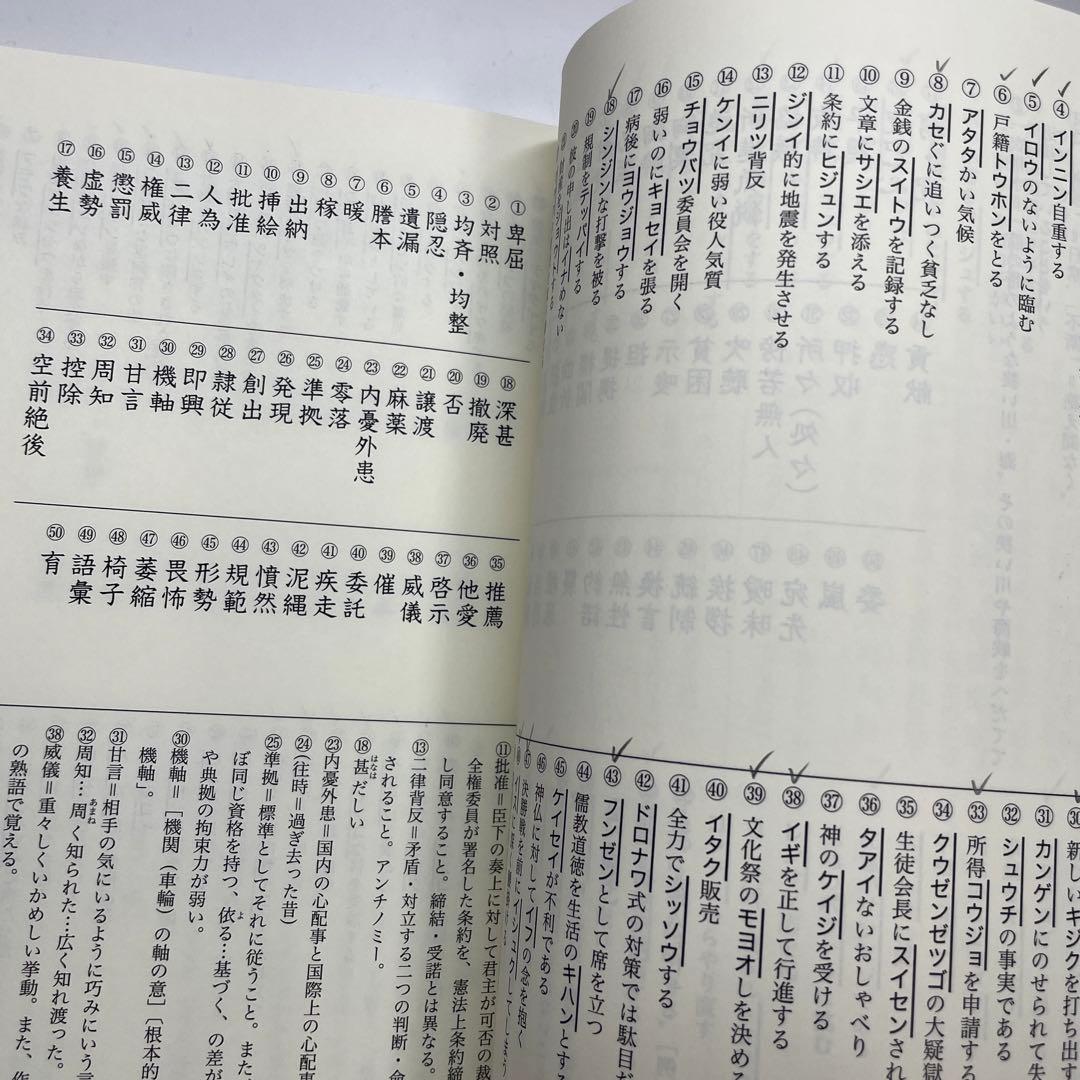 ④ インニン自重する
⑤ イロウのないように臨む
⑥ 戸籍トウホンをとる
⑦ アタタかい気候
⑧ カセぐに追いつく貧乏なし
⑨ 金銭のスイトウを記録する
⑩ 文章にサシエを添える
⑪ 条約にヒジュンする
⑫ ジンイ的に地震を発生させる
⑬ ニリツ背反
⑭ ケンイに弱い役人気質
⑮ チョウバツ委員会を開く
⑯ 弱いのにキョセイを張る
⑰ 病後にヨウジョウする
⑱ シンジンな打撃を被る
⑲ 規制をテッパイする
⑳ 彼の申し出はイナめない
新しいキジクを打ち出す
㉛ カンゲンにのせられて失
㉜ シュウチの事実である
㉝ 所得コウジョを申請する
㉞ クウゼンゼツゴの大疑獄
㉟ 生徒会長にスイセンされ
㊱ タアイないおしゃべり
㊲ 神のケイジを受ける
㊳ イギを正して行進する
㊴ 文化祭のモヨオしを決め
㊵ イタク販売
㊶ 全力でシッソウする
㊷ ドロナワ式の対策では駄目だ
㊸ フンゼンとして席を立つ
㊹ 儒教道徳を生活のキハンとす
㊺ ケイセイが不利である
㊻ 神仏に対してイフの念を抱く
㊼ 決勝戦を前にイシュクしてしまう
① 卑屈
② 対照
③ 均斉・均整
④ 隠忍
⑤ 遺漏
⑥ 謄本
⑦ 暖
⑧ 稼
⑨ 出納
⑩ 挿絵
⑪ 批准
⑫ 人為
⑬ 二律
⑭ 権威
⑮ 懲罰
⑯ 虚勢
⑰ 養生
⑱ 深甚
⑲ 撤廃
⑳ 否
㉑ 譲渡
㉒ 麻薬
㉓ 内憂外患
㉔ 零落
㉕ 準拠
㉖ 発現
㉗ 創出
㉘ 隷従
㉙ 即興
㉚ 機軸
㉛ 甘言
㉜ 周知
㉝ 控除
㉞ 空前絶後
㉟ 推薦
㊱ 他愛
㊲ 啓示
㊳ 威儀
㊴ 催
㊵ 委託
㊶ 疾走
㊷ 泥縄
㊸ 憤然
㊹ 規範
㊺ 形勢
㊻ 畏怖
㊼ 萎縮
㊽ 椅子
㊾ 語彙
㊿ 育
⑪批准＝臣下の奏上に対して君主が可否の裁
全権委員が署名した条約を、憲法上条約締
し同意すること。締結・受諾とは異なる。
⑬二律背反＝矛盾・対立する二つの判断・命
されること。アンチノミー。
⑱甚だしい
はなは
㉓内憂外患＝国内の心配事と国際上の心配事
㉔（往時＝過ぎ去った昔）
㉕準拠＝標準としてそれに従うこと。また
ぼ同じ資格を持つ、依る…基づく、の差が
よ
や典拠の拘束力が弱い。
㉚機軸＝［機関（車輪）の軸の意］〔根本的
機軸」。
㉛甘言＝相手の気にいるように巧みにいう言
㉜周知…周く知られた…広く知れ渡った。
あまね
㊳威儀＝重々しくいかめしい挙動。また、作
の熟語で覚える。